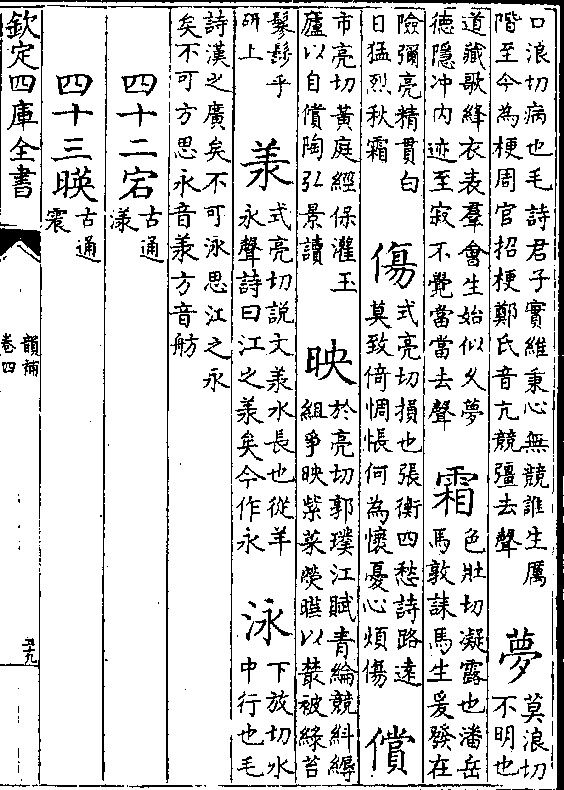 口浪切病也毛詩君子實維秉心無競誰生厲
階至今為梗周官招梗鄭氏音亢競彊去聲
夢
莫浪切
不明也
道藏歌絳衣表羣會生始似夂夢
德隱冲内迹至寂不覺當當去聲
霜
色壯切凝露也潘岳
馬敦誄馬生爰發在
險彌亮精貫白
日猛烈秋霜
傷
式亮切損也張衡四愁詩路遠
莫致倚惆悵何為懷憂心煩傷
償
市亮切黄庭經保灌玉
廬以自償陶弘景讀
映
於亮切郭璞江賦青綸競糾縟
組爭映紫菜熒曄以叢被綠苔
鬖髿乎
研上
羕
式亮切説文羕水長也從羊
永聲詩曰江之羕矣今作永
泳
下放切水
中行也毛
詩漢之廣矣不可泳思江之永
矣不可方思永音羕方音舫
四十二宕
古通
漾
四十三暎
古通
震
欽定四庫全書
韻補
卷四